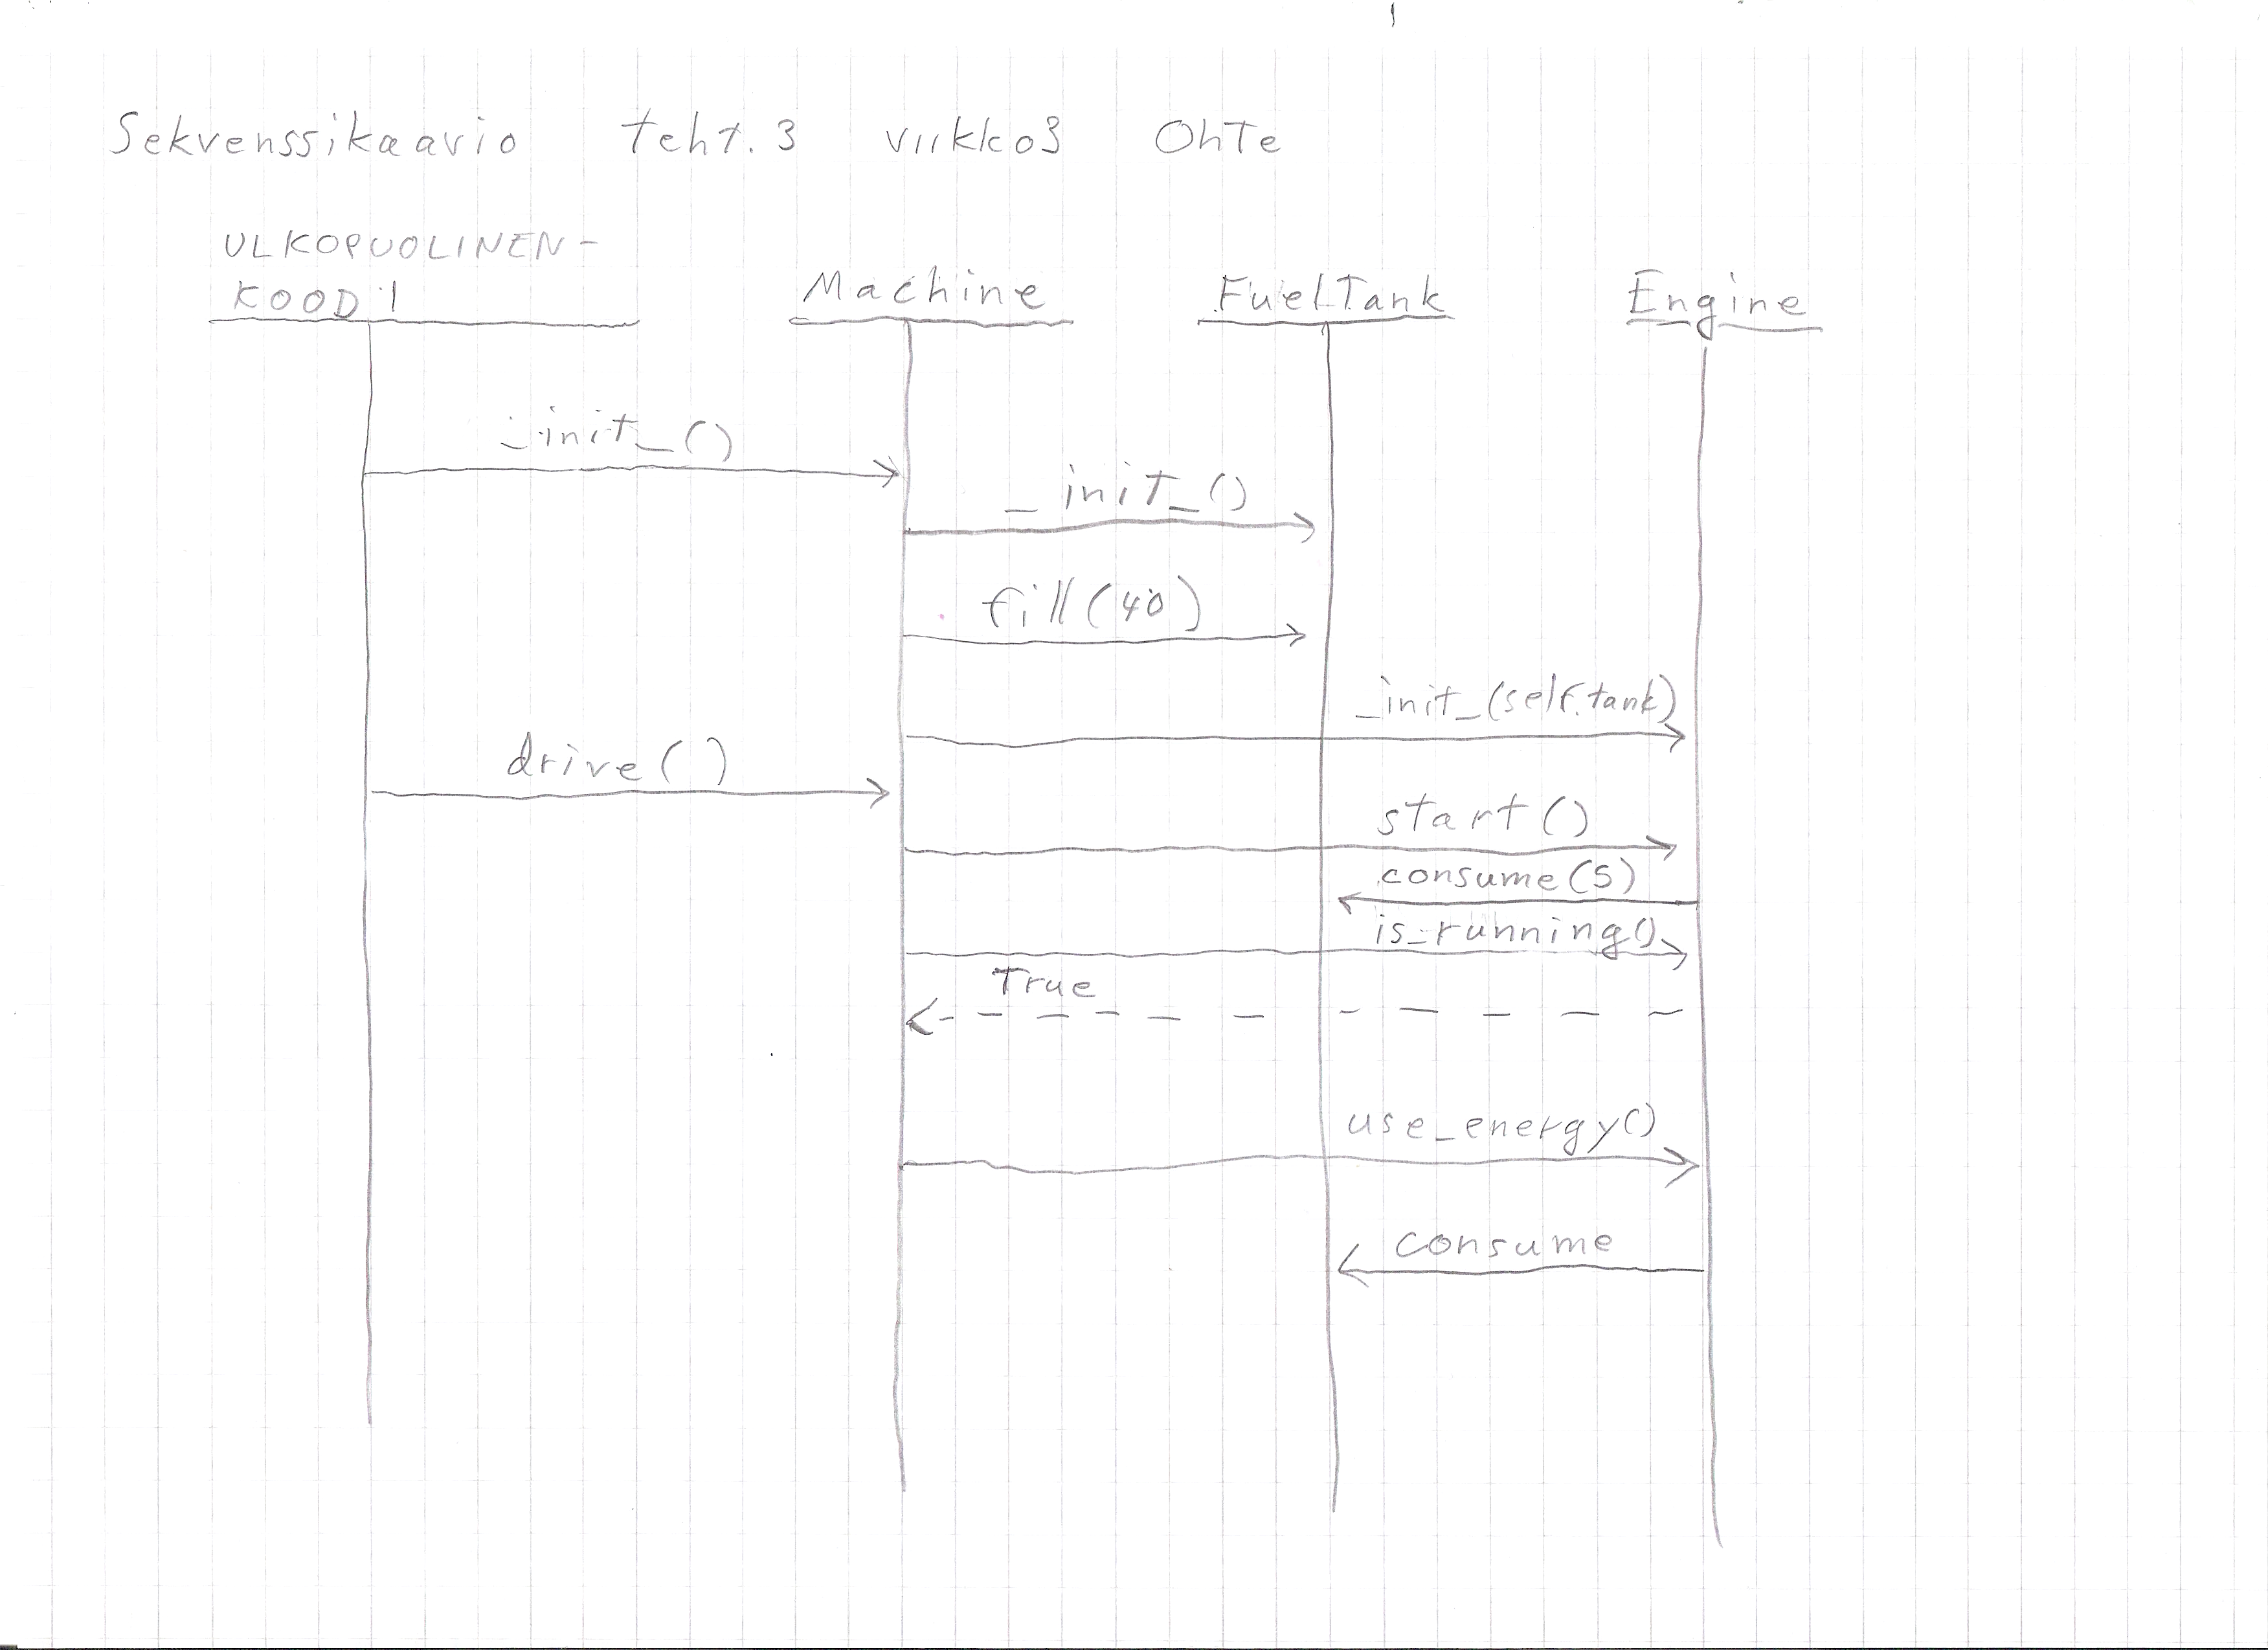 Sekvenssikaavio teht.3 viikko3 OhTe
ULKOPUOLINEN-
KOODI
Machine FuelTank Engine
_init_()
_init_()
fill(40)
_init_(self.tank)
drive()
start()
consume(5)
is_running()
True
use_energy()
consume